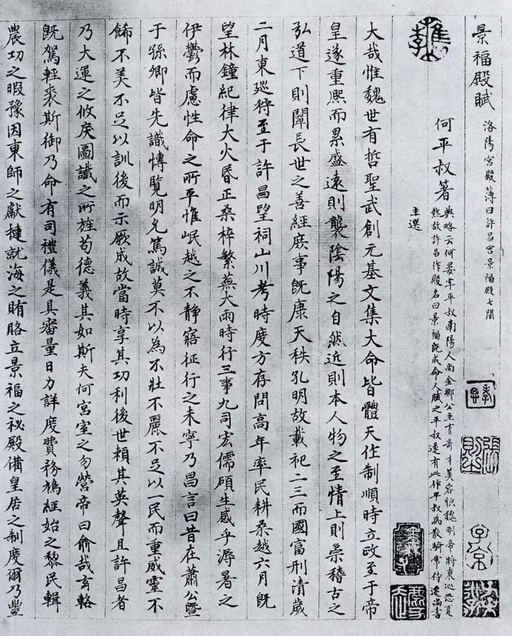 景福殿賦 洛陽宮殿簿曰許昌宮景福殿七間
何平叔著 典略云何晏字平叔南陽人尚金鄉公主有奇才美容貌魏明帝將東巡恐夏
熱故許昌作殿名曰景福既成命人賦之平叔遂有此作平叔為散騎常侍遷尚書
主選
大哉惟魏世有哲聖武創元基文集大命皆體天作制順時立政至于帝
皇遂重熙而累盛遠則襲陰陽之自然近則本人物之至情上則崇稽古之
弘道下則闡長世之善經庶事既康天秩孔明故載祀二三而國富刑清歲
二月東巡狩至于許昌望祠山川考時度方存問高年率民耕桑越六月既
望林鐘紀律大火昏正桑梓繁蕪大雨時行三事九司宏儒碩生感乎溽暑之
伊鬱而慮性命之所平惟岷越之不靜寤征行之未寧乃昌言曰昔在蕭公暨
于孫卿皆先識博覽明允篤誠莫不以為不壯不麗不足以一民而重威靈不
飭不美不足以訓後而示厥成故當時享其功利後世賴其英聲且許昌者
乃大運之攸戾圖讖之所旌苟德義其如斯夫何宮室之勿營帝曰俞哉玄輅
既駕輕裘斯御乃命有司禮儀是具審量日力詳度費務鳩經始之黎民輯
農功之暇豫因東師之獻捷就海之賄賂立景福之祕殿備皇居之制度爾乃豐